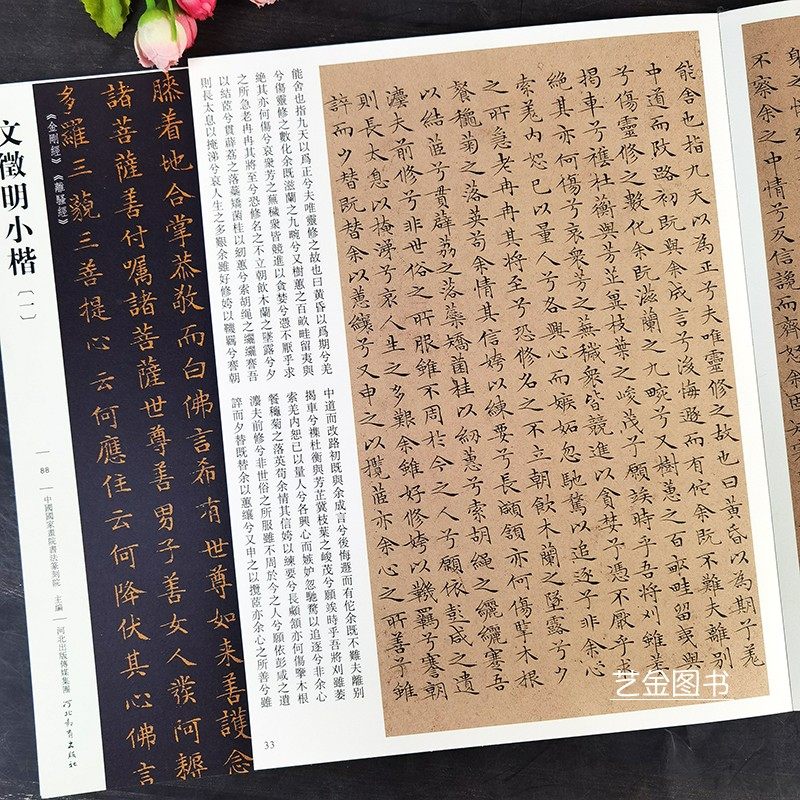 不察余之中情兮反信讒而齊怒
能舍也指九天以為正兮夫唯靈修之故也曰黃昏以為期兮羗
中道而改路初既與余成言兮後悔遁而有佗余既不難夫離別
兮傷靈修之數化余既滋蘭之九畹兮又樹蕙之百畝畦留夷與
揭車兮襍杜衡與芳芷兾枝葉之峻茂兮願竢時乎吾將刈雖萎
絕其亦何傷兮哀衆芳之蕪穢衆皆競進以貪婪兮憑不厭乎求
索羗內恕已以量人兮各興心而嫉妬忽馳騖以追逐兮非余心
之所急老冉冉其將至兮恐修名之不立朝飲木蘭之墜露兮夕
餐穐菊之落英苟余情其信姱以練要兮長顑頷亦何傷擥木根
以結茝兮貫薜荔之落蕊矯菌桂以紉蕙兮索胡繩之纚纚謇吾
灋夫前修兮非世俗之所服雖不周於今之人兮願依彭咸之遺
則長太息以掩涕兮哀人生之多艱余雖好修姱以鞿羈兮謇朝
誶而夕替既替余以蕙纕兮又申之以攬茝亦余心之所善兮雖
能舍也指九天以爲正兮夫唯靈修之故也曰黃昏以爲期兮羌
中道而改路初既與余成言兮後悔遁而有佗余既不難夫離別
兮傷靈修之數化余既滋蘭之九畹兮又樹蕙之百畝畦留夷與
揭車兮襍杜衡與芳芷冀枝葉之峻茂兮願竢時乎吾將刈雖萎
絕其亦何傷兮哀衆芳之蕪穢衆皆競進以貪婪兮憑不厭乎求
索羌内恕已以量人兮各興心而嫉妒忽馳騖以追逐兮非余心
之所急老冉冉其將至兮恐修名之不立朝飲木蘭之墜露兮夕
餐穐菊之落英苟余情其信姱以練要兮長顑頷亦何傷擥木根
以結茝兮貫薜荔之落蕊矯菌桂以紉蕙兮索胡繩之纚纚謇吾
灋夫前修兮非世俗之所服雖不周於今之人兮願依彭咸之遺
則長太息以掩涕兮哀人生之多艱余雖好修姱以鞿羈兮謇朝
誶而夕替既替余以蕙纕兮又申之以攬茝亦余心之所善兮雖
33
膝着地合掌恭敬而白佛言希有世尊如来善護念
諸菩薩善付嘱諸菩薩世尊善男子善女人發阿耨
多羅三藐三菩提心云何應住云何降伏其心佛言
《金剛經》《離騷經》
文徵明小楷（一）
88
中國國家畫院書法篆刻院 主編
河北出版傳媒集團 河北教育出版社
艺金图书